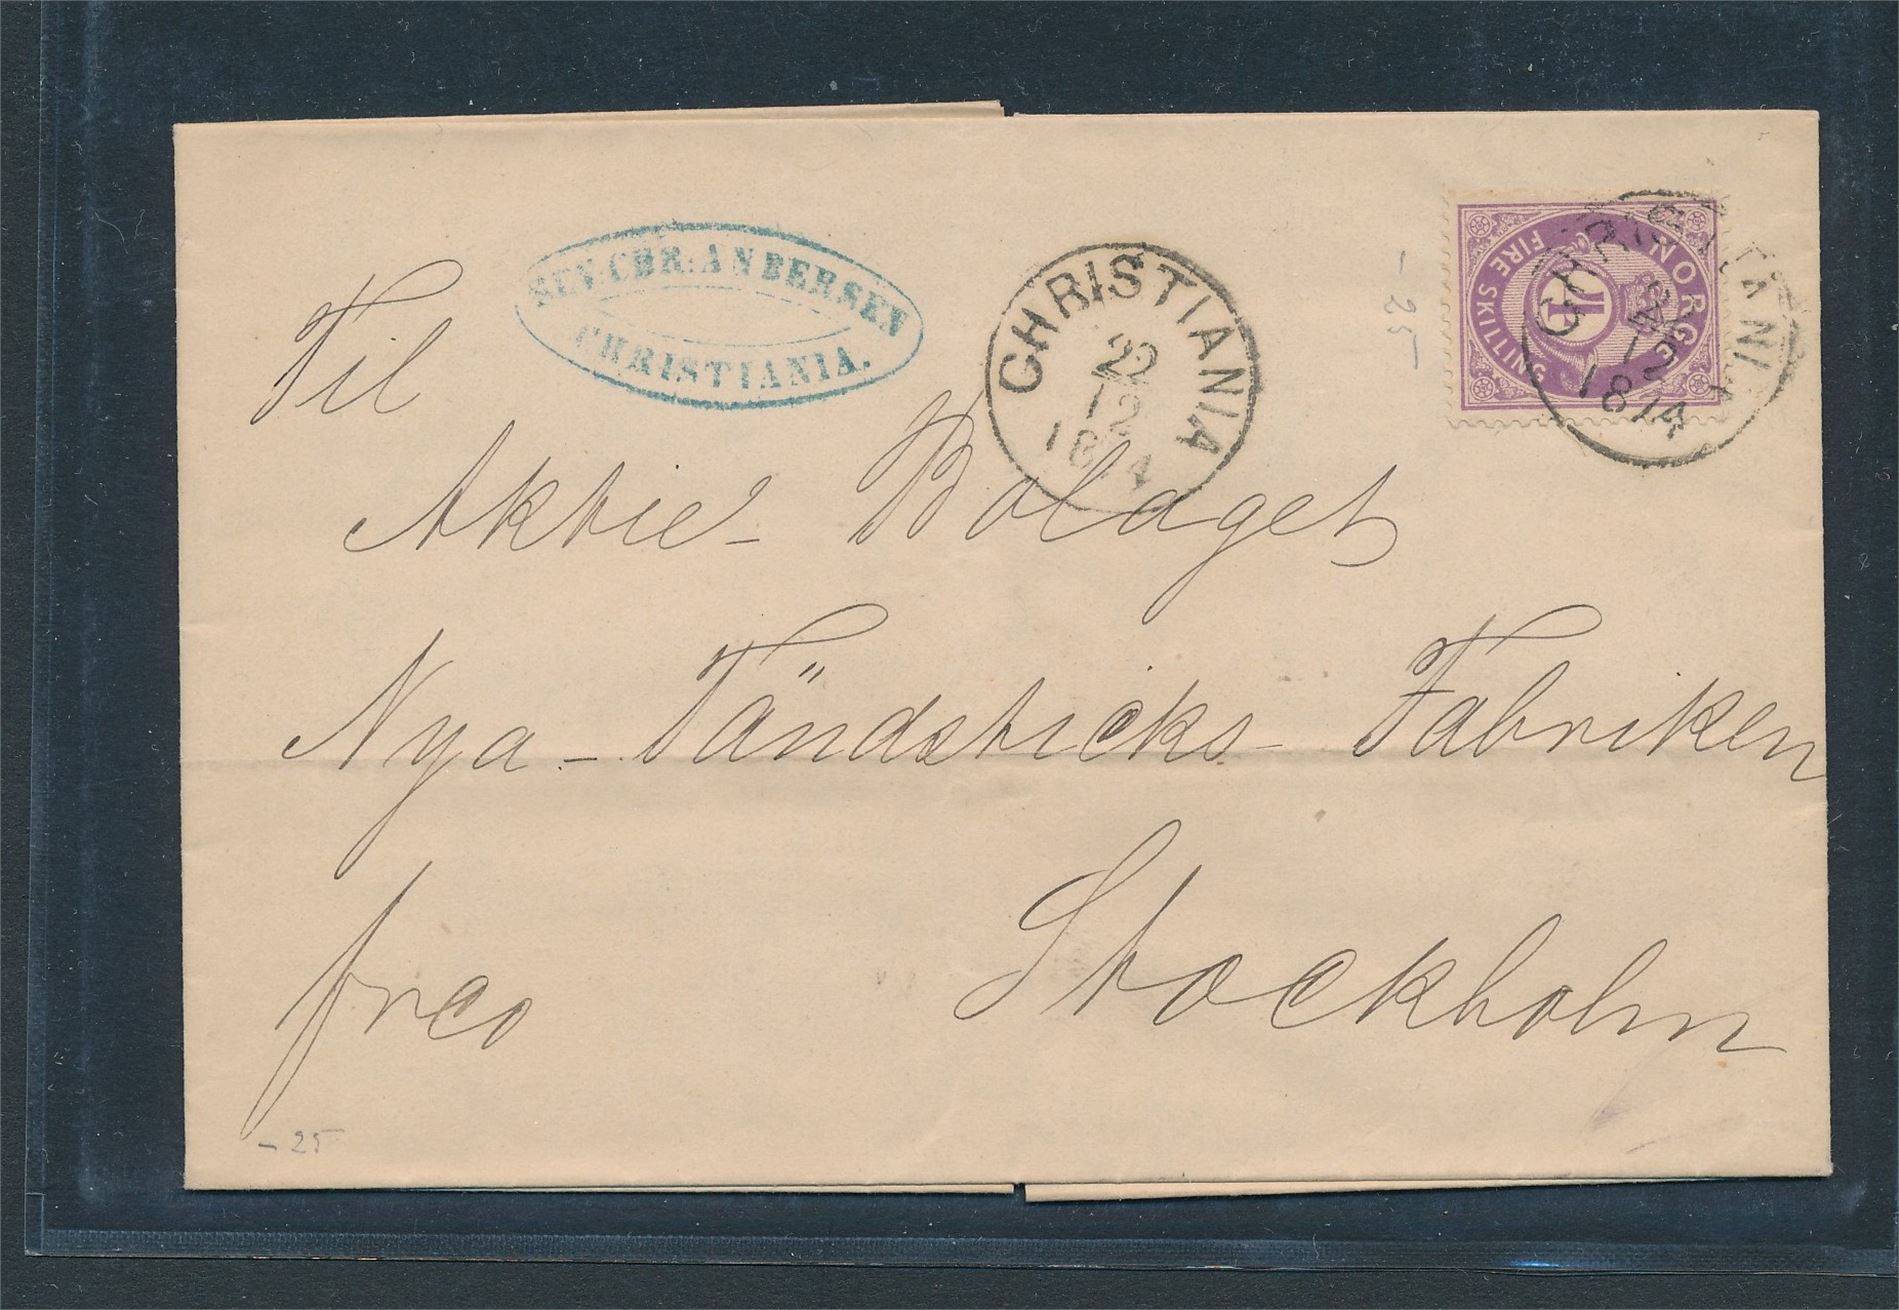 SEV. CHR. ANDERSEN
CHRISTIANIA.
CHRISTIANIA
22
12
1874
NORGE
4
FIRE SKILLING
CHRISTIANIA
22
12
1874
- 25 -
Til
Aktie- Bolaget
Nya - Tändsticks - Fabriken
Stockholm
frco
- 25